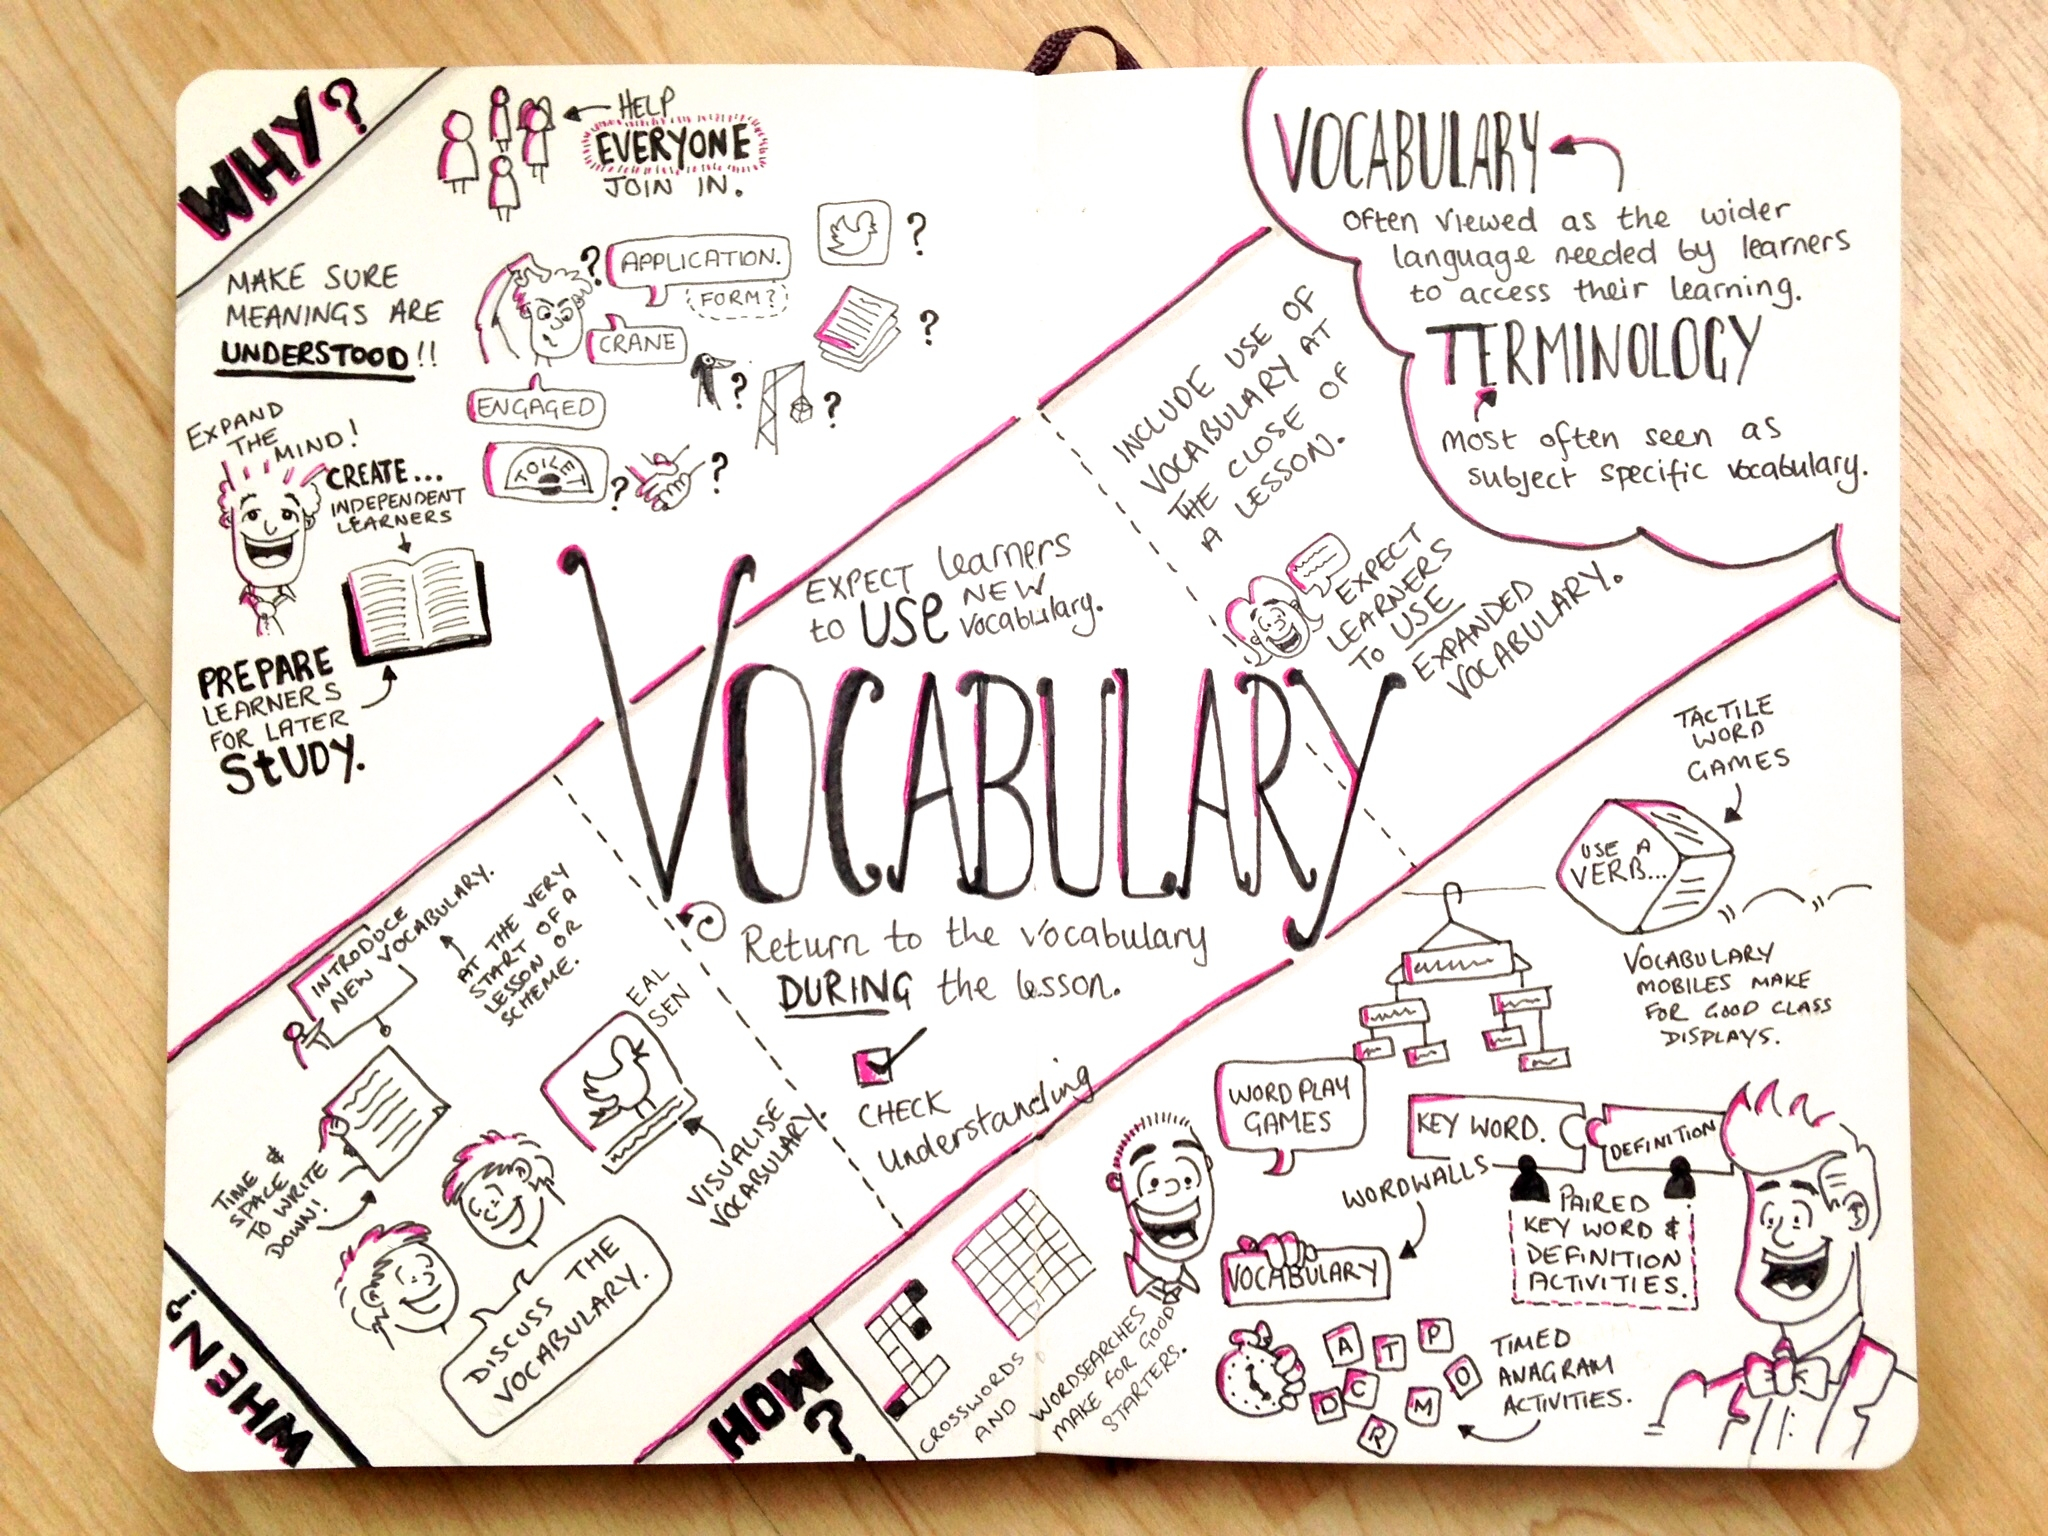 WHY?
HELP
EVERYONE
JOIN IN.
MAKE SURE
MEANINGS ARE
UNDERSTOOD!!
?
APPLICATION.
FORM?
CRANE
ENGAGED
TOILET
?
?
?
?
?
?
EXPAND
THE
MIND!
CREATE...
INDEPENDENT
LEARNERS
PREPARE
LEARNERS
FOR LATER
STUDY.
VOCABULARY
often viewed as the wider
language needed by learners
to access their learning.
TERMINOLOGY
most often seen as
subject specific vocabulary.
VOCABULARY
WHEN?
INTRODUCE
NEW VOCABULARY.
AT THE VERY
START OF A
LESSON OR
SCHEME.
TIME &
SPACE
TO WRITE
DOWN!
EAL
SEN
VISUALISE
VOCABULARY.
DISCUSS THE
VOCABULARY.
EXPECT learners
to USE NEW
vocabulary.
Return to the vocabulary
DURING the lesson.
CHECK
understanding
INCLUDE USE OF
VOCABULARY AT
THE CLOSE OF
A LESSON.
EXPECT
LEARNERS
TO USE
EXPANDED
VOCABULARY.
HOW
?
CROSSWORDS
AND
WORDSEARCHES
MAKE FOR GOOD
STARTERS.
TACTILE
WORD
GAMES
USE A
VERB...
VOCABULARY
MOBILES MAKE
FOR GOOD CLASS
DISPLAYS.
WORD PLAY
GAMES
KEY WORD.
DEFINITION
WORDWALLS
VOCABULARY
PAIRED
KEY WORD &
DEFINITION
ACTIVITIES.
A T P
D C M O
R
TIMED
ANAGRAM
ACTIVITIES.